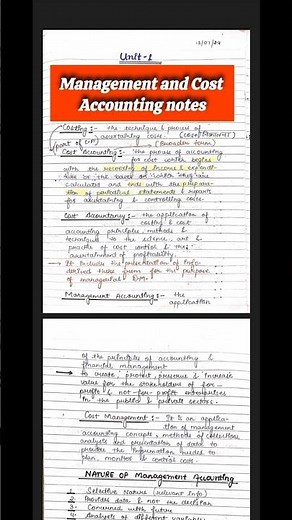 12/07/24
Unit-1
Management and Cost
Accounting notes
Costing :- the technique & process of
ascertaining costs. (COST/WEIGHT)
(part of CA) (Broader term)
Cost Accounting :- the process of accounting
for cost which begins
with the recording of income & expendi-
ture or the bases on which they are
calculated and ends with the prepara-
tion of periodical statements & reports
for ascertaining & controlling costs.
Cost Accountancy :- the application of
costing & cost
accounting principles, methods &
techniques to the science, art &
practice of cost control & the
ascertainment of profitability.
It includes the presentation of info.
derived there from for the purpose
of managerial D.M.
Management Accounting :- the
application
of the principles of accounting &
financial management
to create, protect, preserve & increase
value for the stakeholders of for-
profit & not-for-profit enterprises
in the public & private sectors.
Cost Management :- It is an applica-
tion of management
accounting concepts, methods of collection,
analysis and presentation of data to
provide the information needed to
plan, monitor & control costs.
NATURE OF Management Accounting
1 Selective Nature (relevant Info)
2 Provides data & not the decision
3 Concerned with future
4 Analysis of different variables